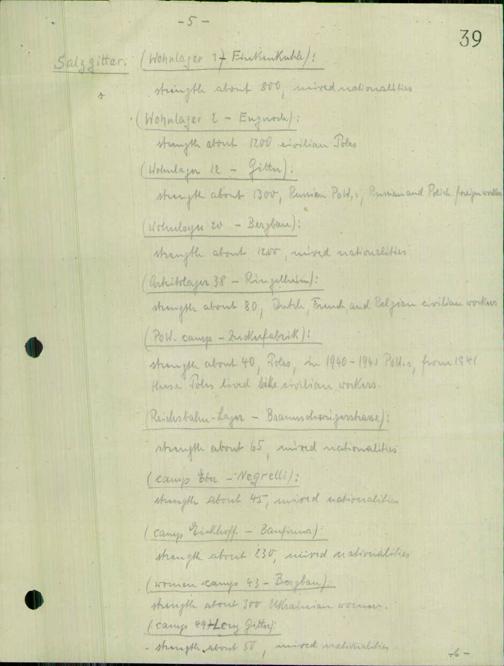 -5-
39
Salzgitter. (Wohnlager 7 - Finkenkuhle):
strength about 800, mixed nationalities
(Wohnlager 2 - Engerode):
strength about 1200 civilian Poles
(Wohnlager 12 - Gitter):
strength about 1300, Russian PoW.s, Russian and Polish foreign workers
(Wohnlager 20 - Bergbau):
strength about 1200, mixed nationalities
(Arbeitslager 38 - Ringelheim):
strength about 80, Dutch, French and Belgian civilian workers
(PoW. camp - Zuckerfabrik):
strength about 40, Poles, in 1940-1941 PoW.s, from 1941
these Poles lived like civilian workers.
(Reichsbahn-Lager - Braunschweigerstrasse):
strength about 65, mixed nationalities
(camp - Negrelli):
strength about 45, mixed nationalities
(camp Eickhoff - Baufirma):
strength about 230, mixed nationalities
(women camp 43 - Bergbau)
strength about 300 Ukrainian women.
(camp 49 Gitter):
- strength about 50, mixed nationalities
-6-